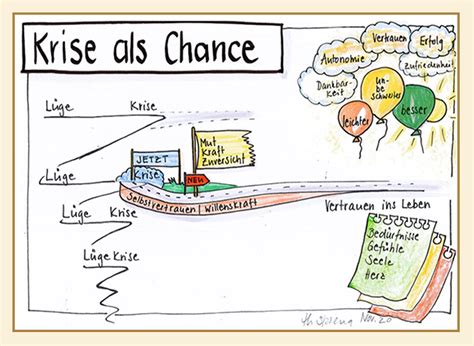 Krise als Chance
Vertrauen
Erfolg
Autonomie
Zufriedenheit
Dankbar-
keit
un-
be
schwerter
leichter
besser
Lüge Krise
Mut
Kraft
Zuversicht
JETZT
Krise
NEU
Lüge
Selbstvertrauen | Willenskraft
Lüge Krise
Vertrauen ins Leben
Lüge Krise
Bedürfnisse
Gefühle
Seele
Herz
Nov. 20